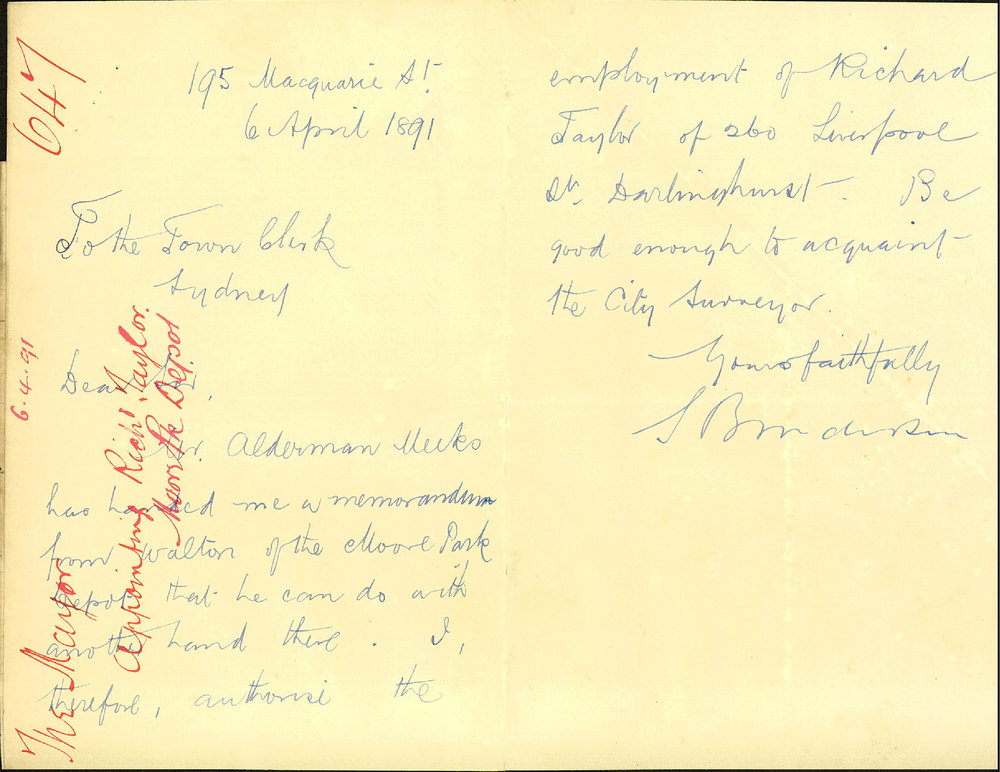 195 Macquarie St.
6 April 1891
To the Town Clerk
Sydney
Dear Sir,
Mr. Alderman Meeks
has handed me a memorandum
from Walton of the Moore Park
Depot that he can do with
another hand there. I,
therefore, authorise the
employment of Richard
Taylor of 260 Liverpool
St. Darlinghurst. Be
good enough to acquaint
the City Surveyor.
Yours faithfully
647
6.4.91
The Mayor
Appointing Richd. Taylor.
Moore Pk Depot